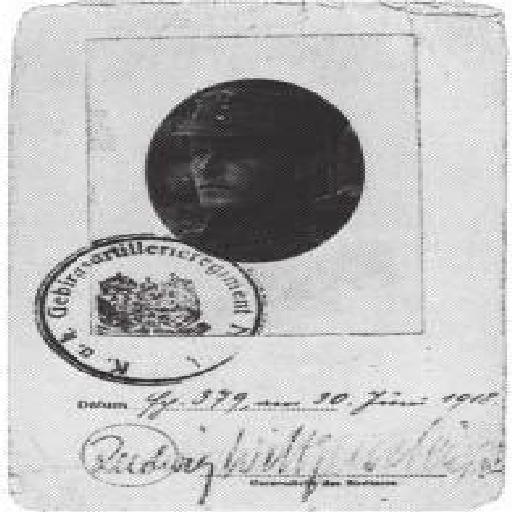 K. u. k. Gebirgsartillerieregiment N
Datum Fp. 379, am 30. Juni 1918
Ludwig Wittgenstein
Unterschrift des Besitzers